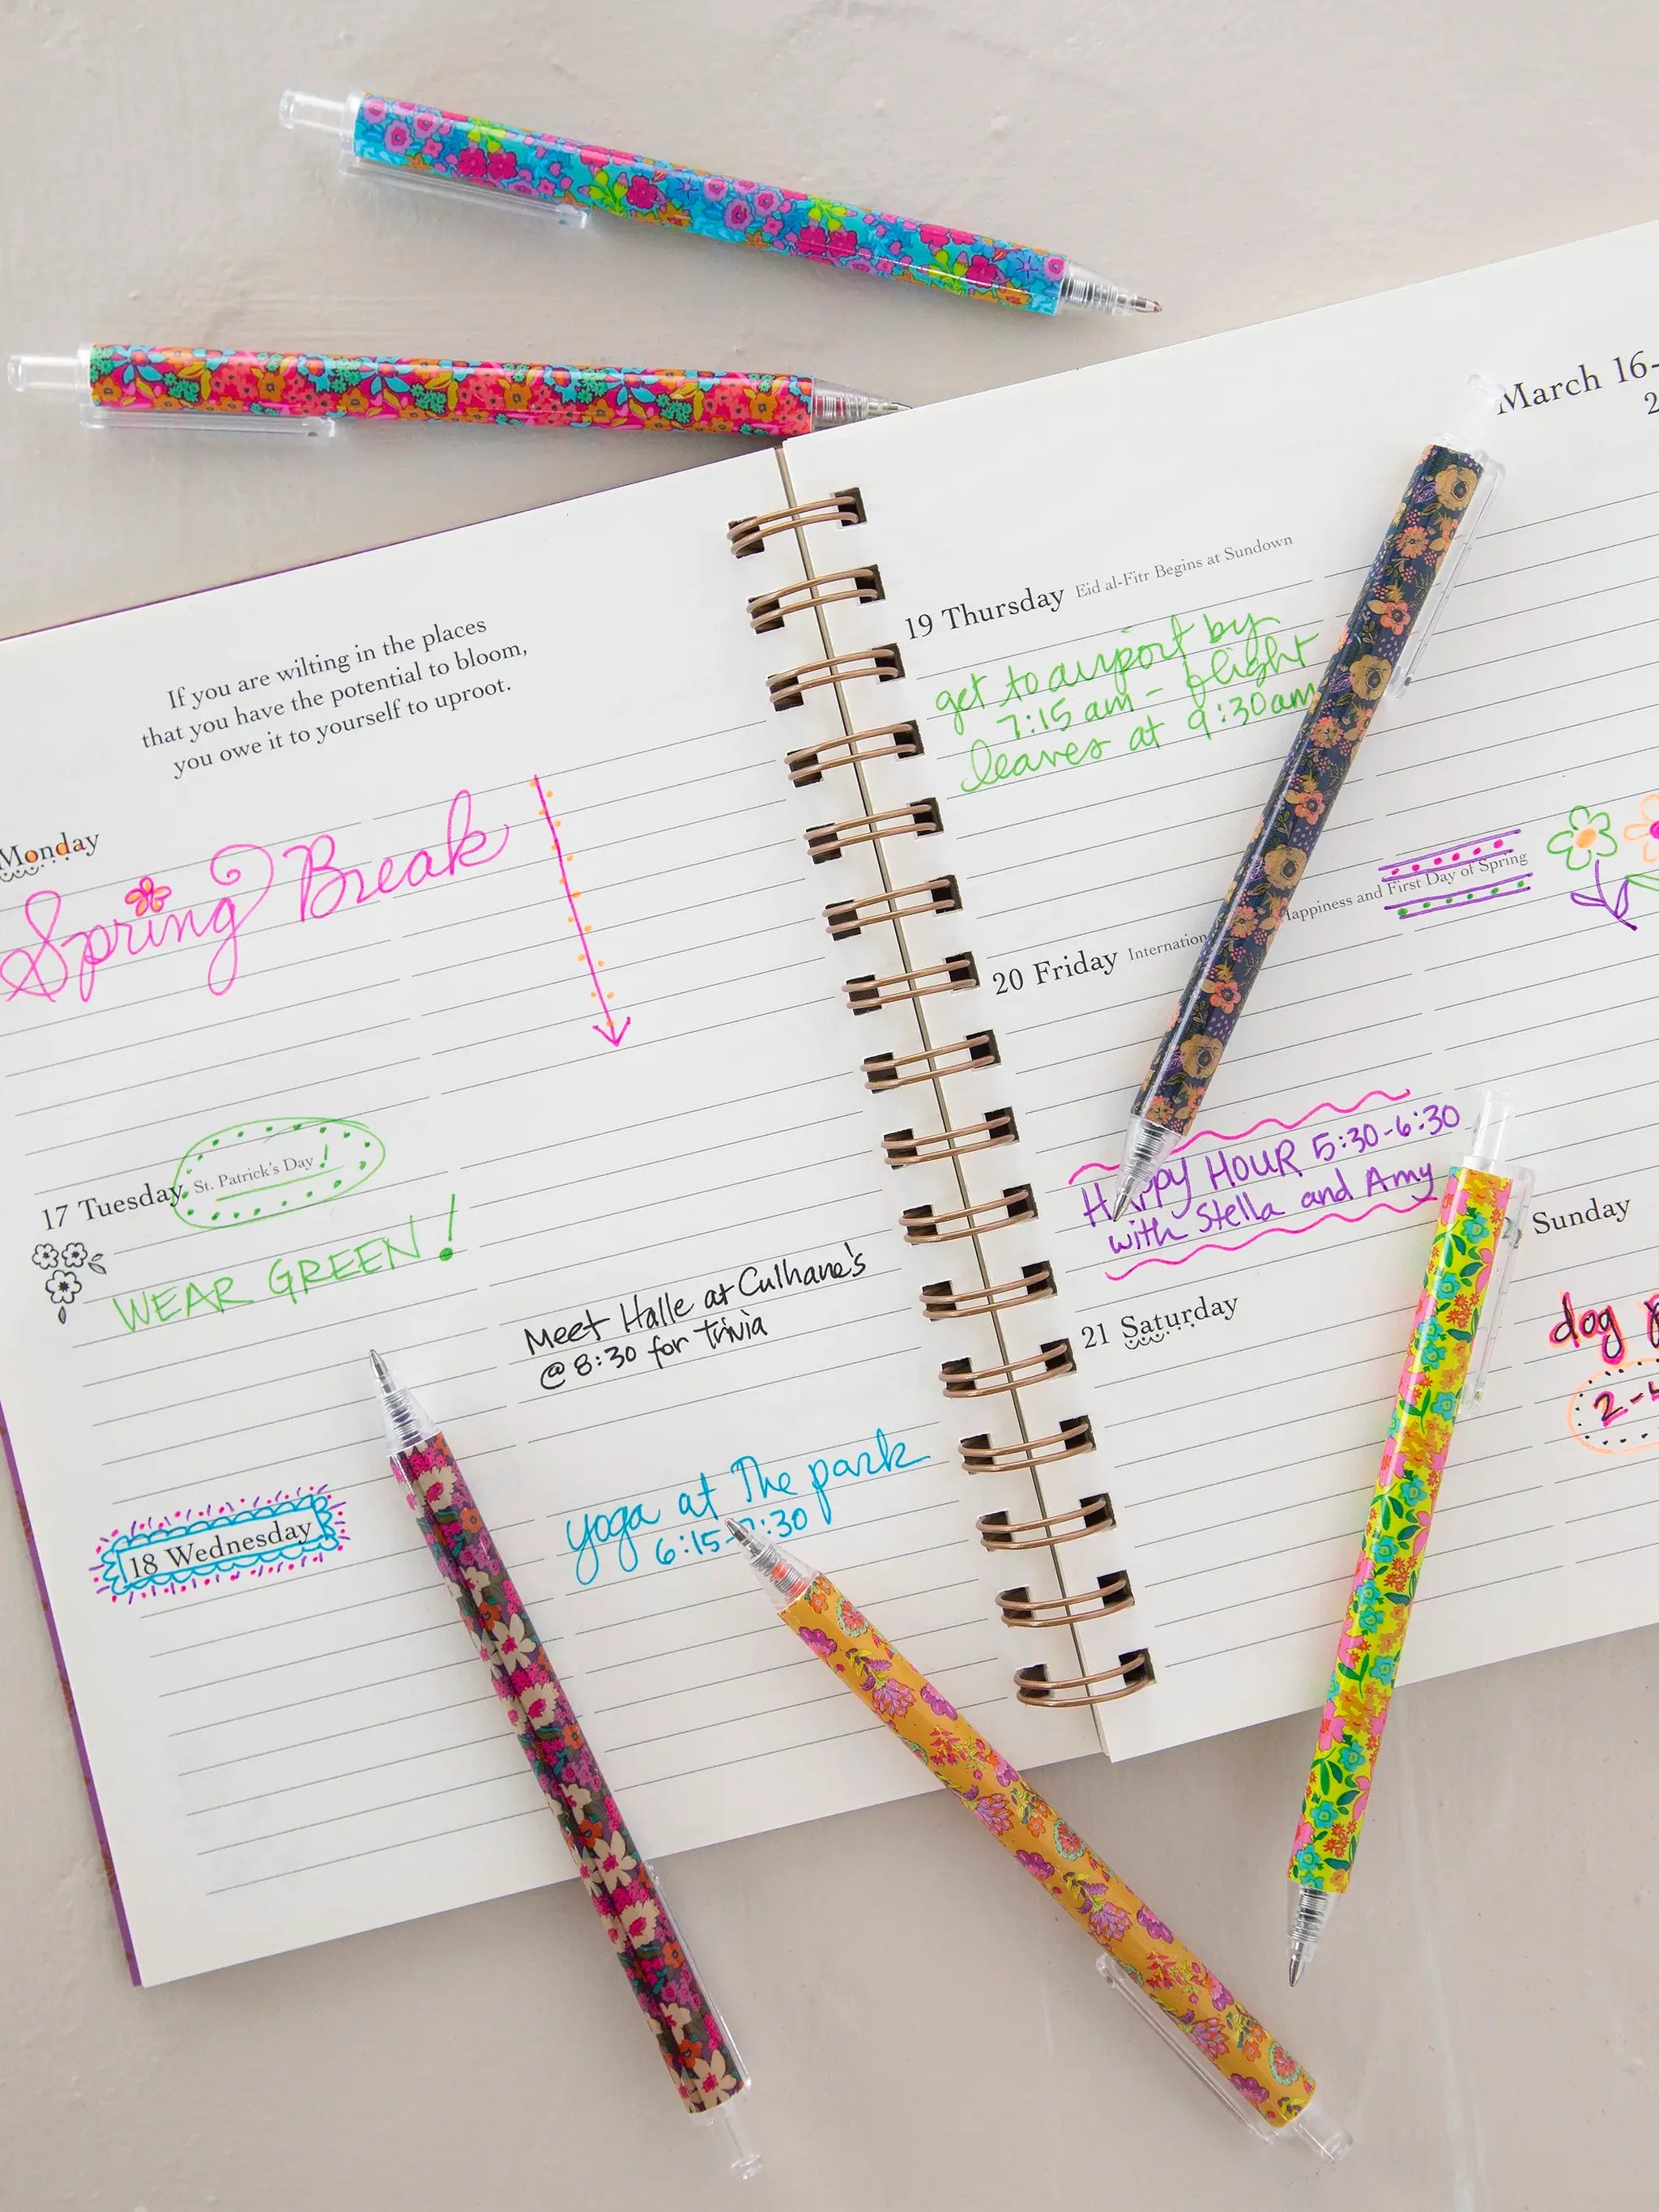 If you are wilting in the places
that you have the potential to bloom,
you owe it to yourself to uproot.
Monday
Spring Break
17 Tuesday St. Patrick's Day !
WEAR GREEN!
Meet Halle at Culhane's
@ 8:30 for trivia
18 Wednesday
yoga at The park
6:15-7:30
March 16-
2
19 Thursday Eid al-Fitr Begins at Sundown
get to airport by
7:15 am - flight
leaves at 9:30am
20 Friday Internation Happiness and First Day of Spring
HAPPY HOUR 5:30-6:30
with Stella and Amy
21 Saturday
Sunday
dog
2-4